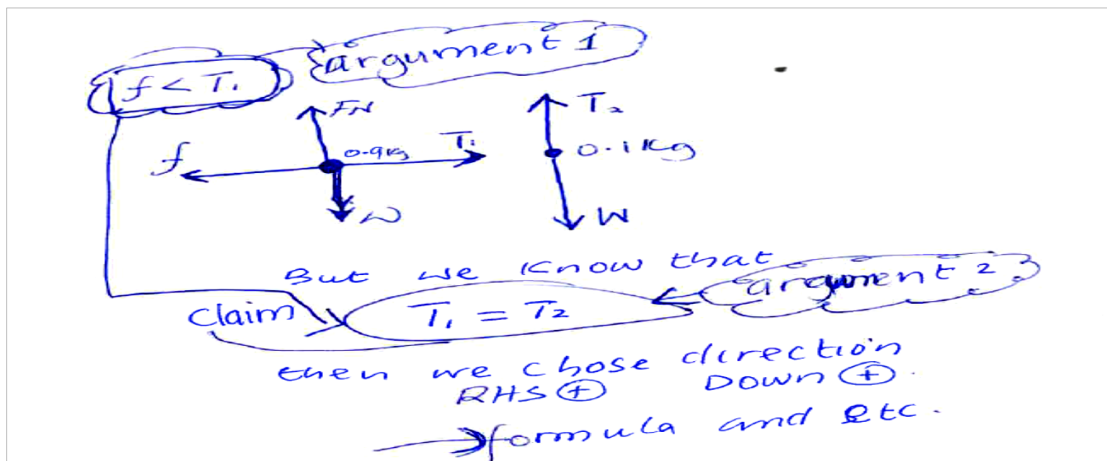 argument 1
f < T₁
FN
T₂
f 0.9kg T₁
0.1kg
W
W
But we know that
argument 2
claim T₁ = T₂
then we chose direction
RHS ⊕ DOWN ⊕.
formula and etc.